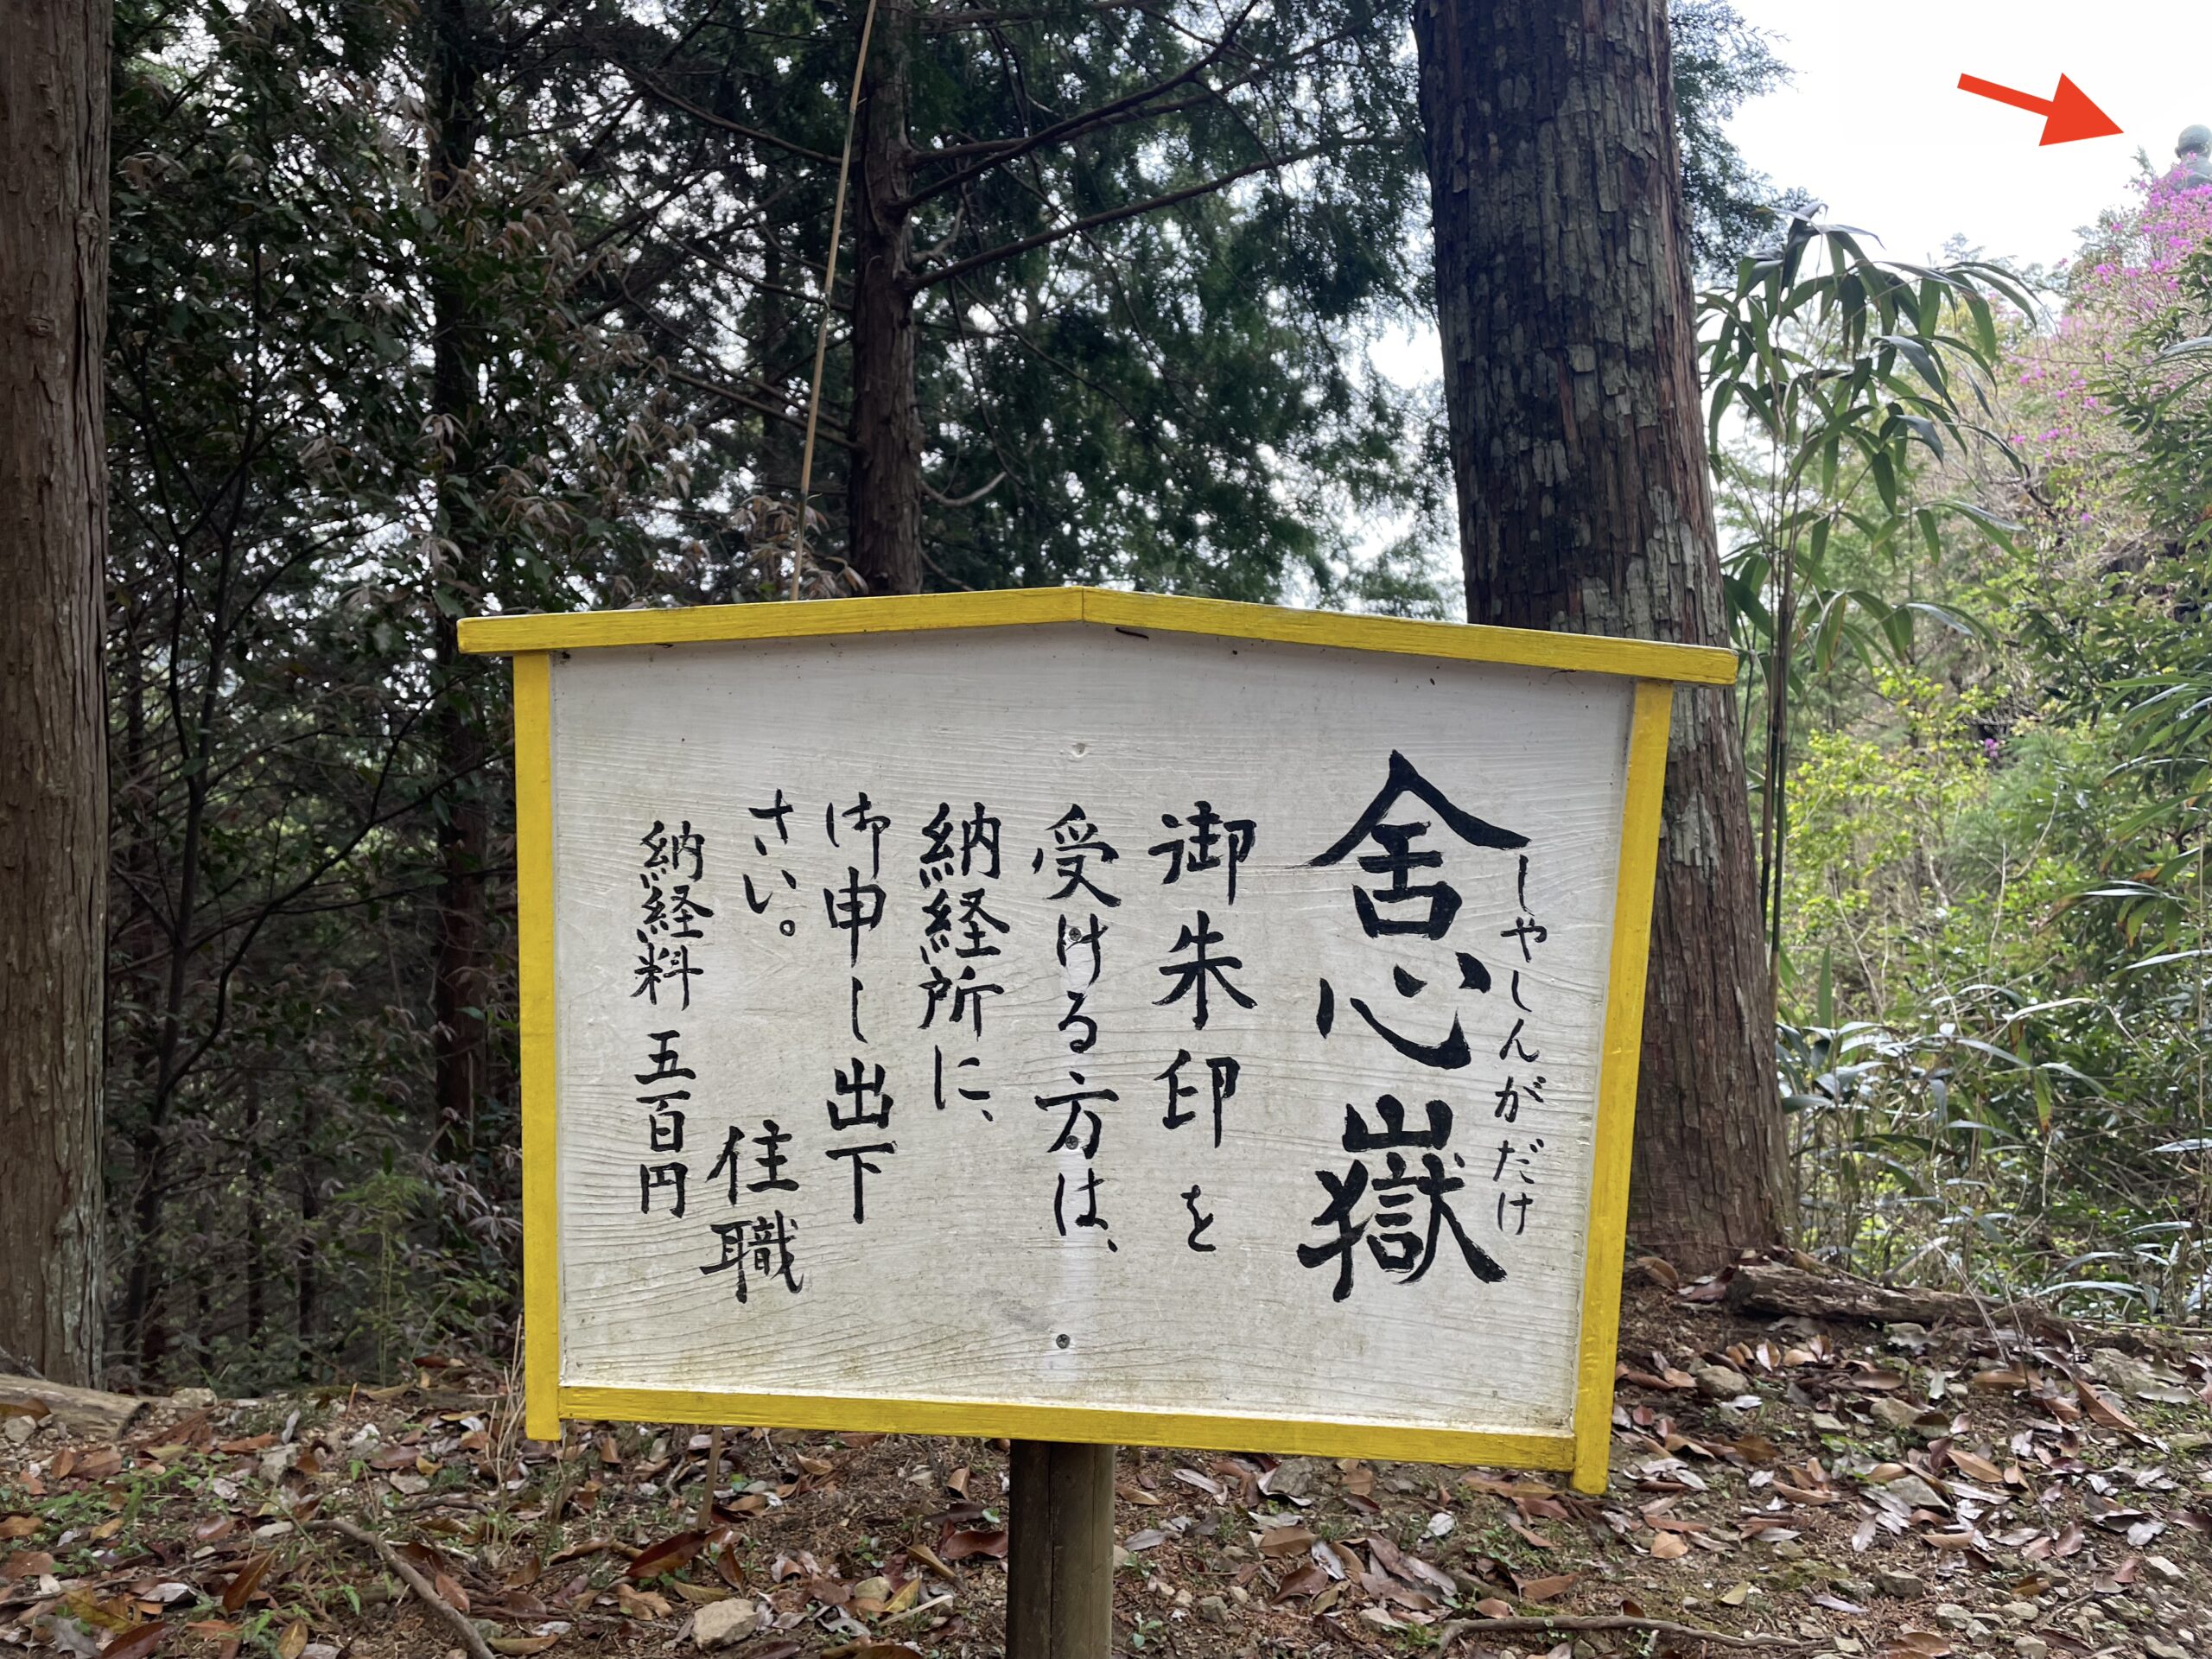 しゃしんがだけ
舍心嶽
御朱印を
受ける方は、
納経所に、
御申し出下
さい。
住職
納経料 五百円